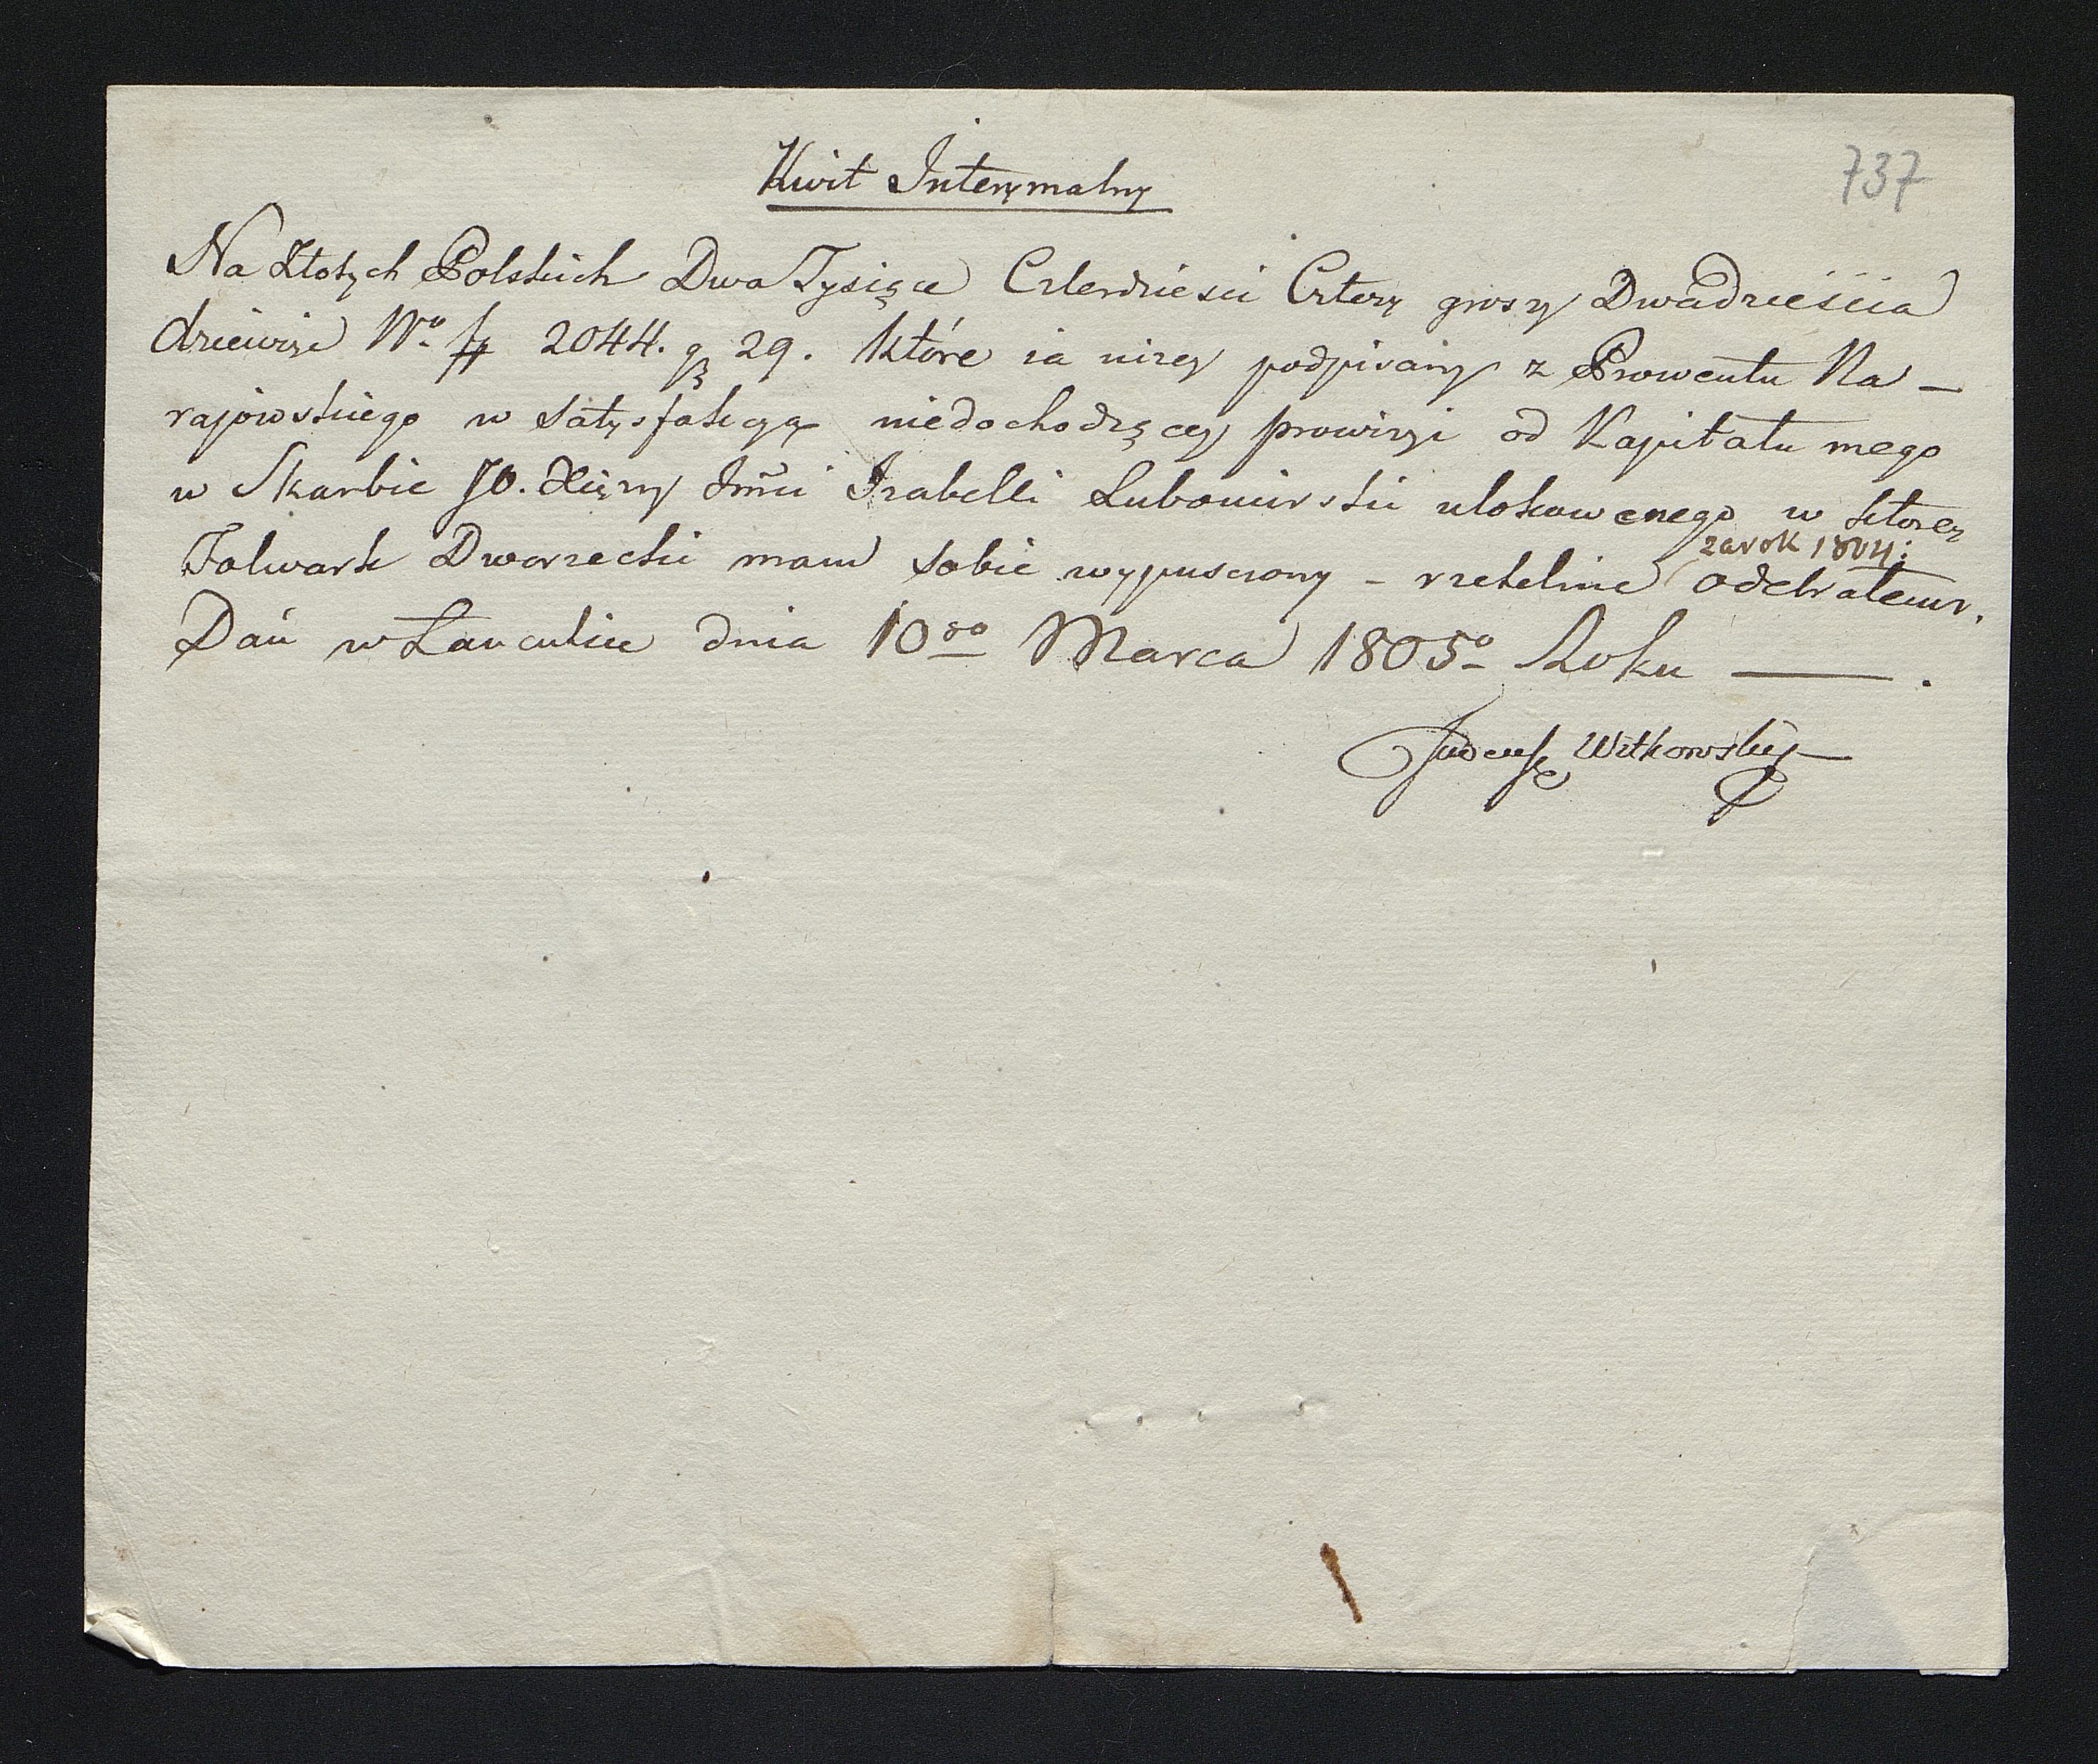 737
Kwit Interymalny
Na Złotych Polskich Dwa Tysiące Czterdziesci Cztery groszy Dwadzieścia
dziewięć No. 2044. gr 29. które ia niżey podpisany z Prowentu Na-
rajowskiego w satysfakcyą niedochodzącey prowizyi od Kapitału mego
w Skarbie JO. Xiężny Jmci Izabelli Lubomirski ulokowanego w ktorey
za rok 1804:
Folwark Dworzecki mam sobie wypusczony - rzetelnie odebrałem.
Dań w Łancucie dnia 10go Marca 1805o Roku —.
Witkowski